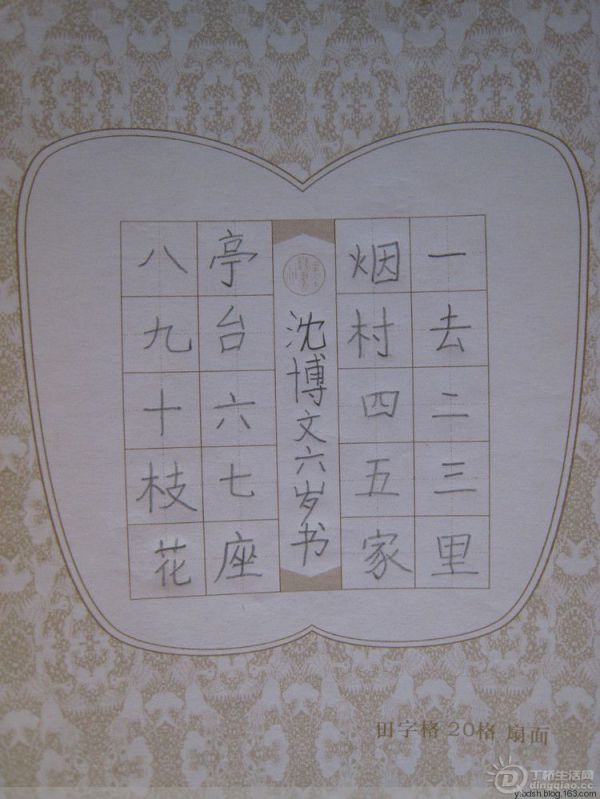 一去二三里
烟村四五家
沈博文六岁书
亭台六七座
八九十枝花
田字格 20格 扇面
丁桥生活网
dingqiao.cc
y.bdsh.blog.163.com